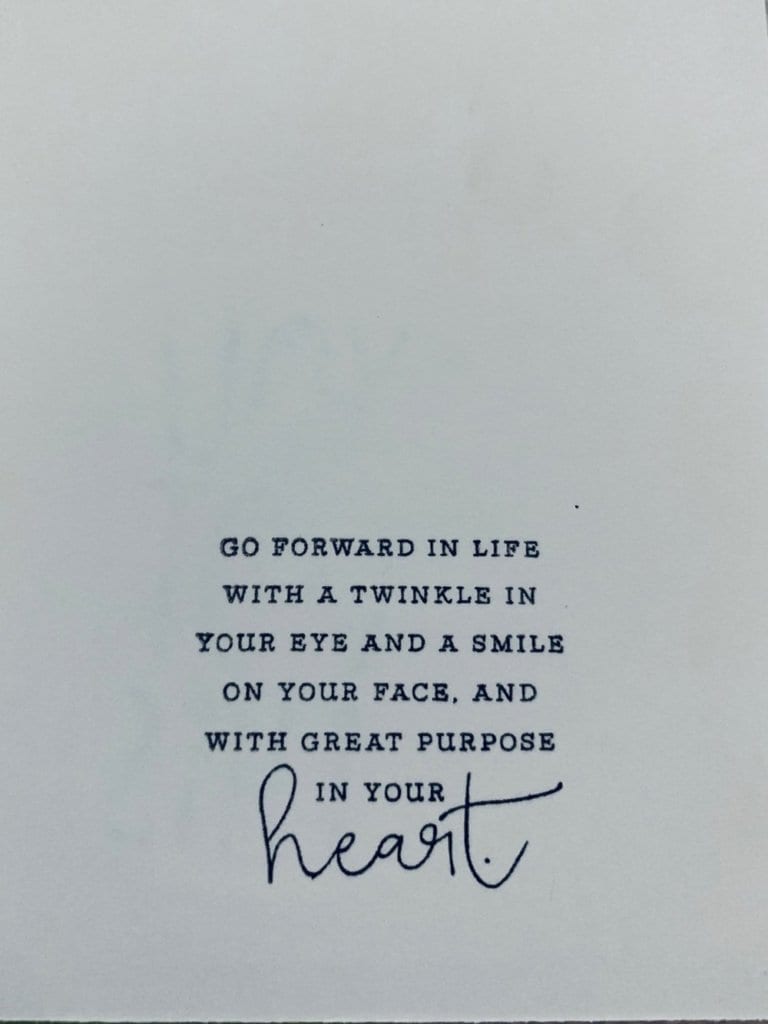 GO FORWARD IN LIFE
WITH A TWINKLE IN
YOUR EYE AND A SMILE
ON YOUR FACE, AND
WITH GREAT PURPOSE
IN YOUR
heart.